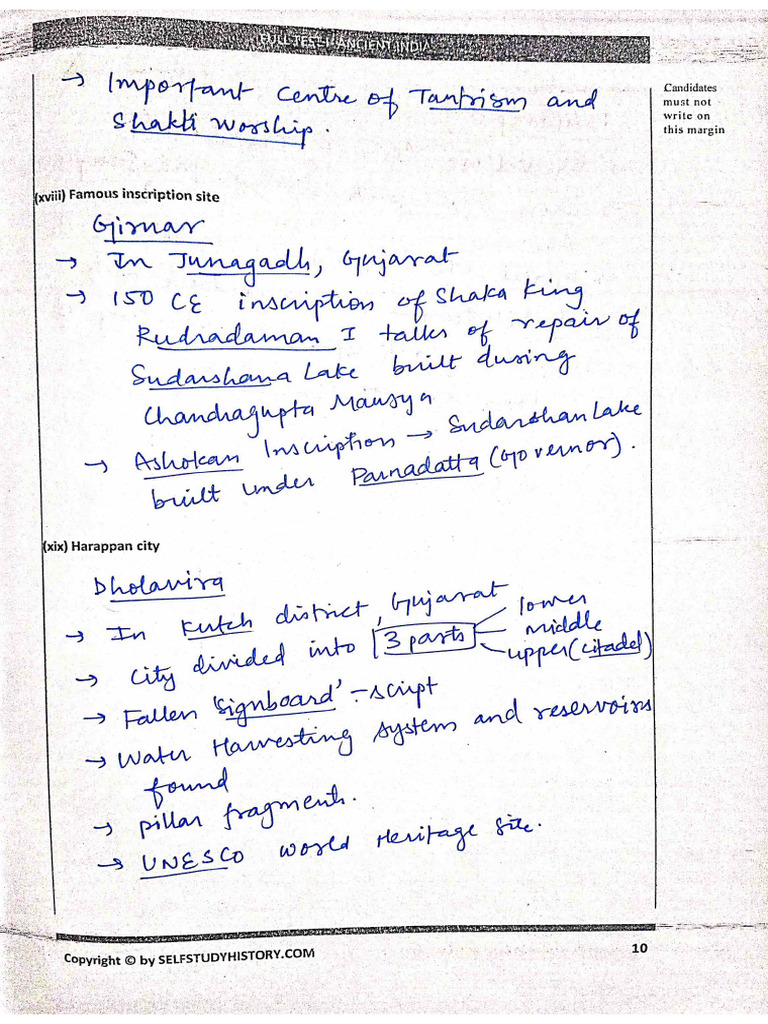 FULL TEST-1 ANCIENT INDIA
→ Important Centre of Tantrism and
Shakti Worship.
Candidates
must not
write on
this margin
(xviii) Famous inscription site
Girnar
→ In Junagadh, Gujarat
→ 150 CE inscription of Shaka King
Rudradaman I talks of repair of
Sudarshana Lake built during
Chandragupta Maurya
→ Ashokan Inscription → Sudarshan Lake
built under Parnadatta (Governor).
(xix) Harappan city
Dholavira
→ In Kutch district, Gujarat
→ City divided into 3 parts lower
middle
upper (citadel)
→ Fallen 'Signboard' - script
→ Water Harvesting system and reservoirs
found
→ pillar fragments.
→ UNESCO World Heritage Site.
Copyright © by SELFSTUDYHISTORY.COM
10